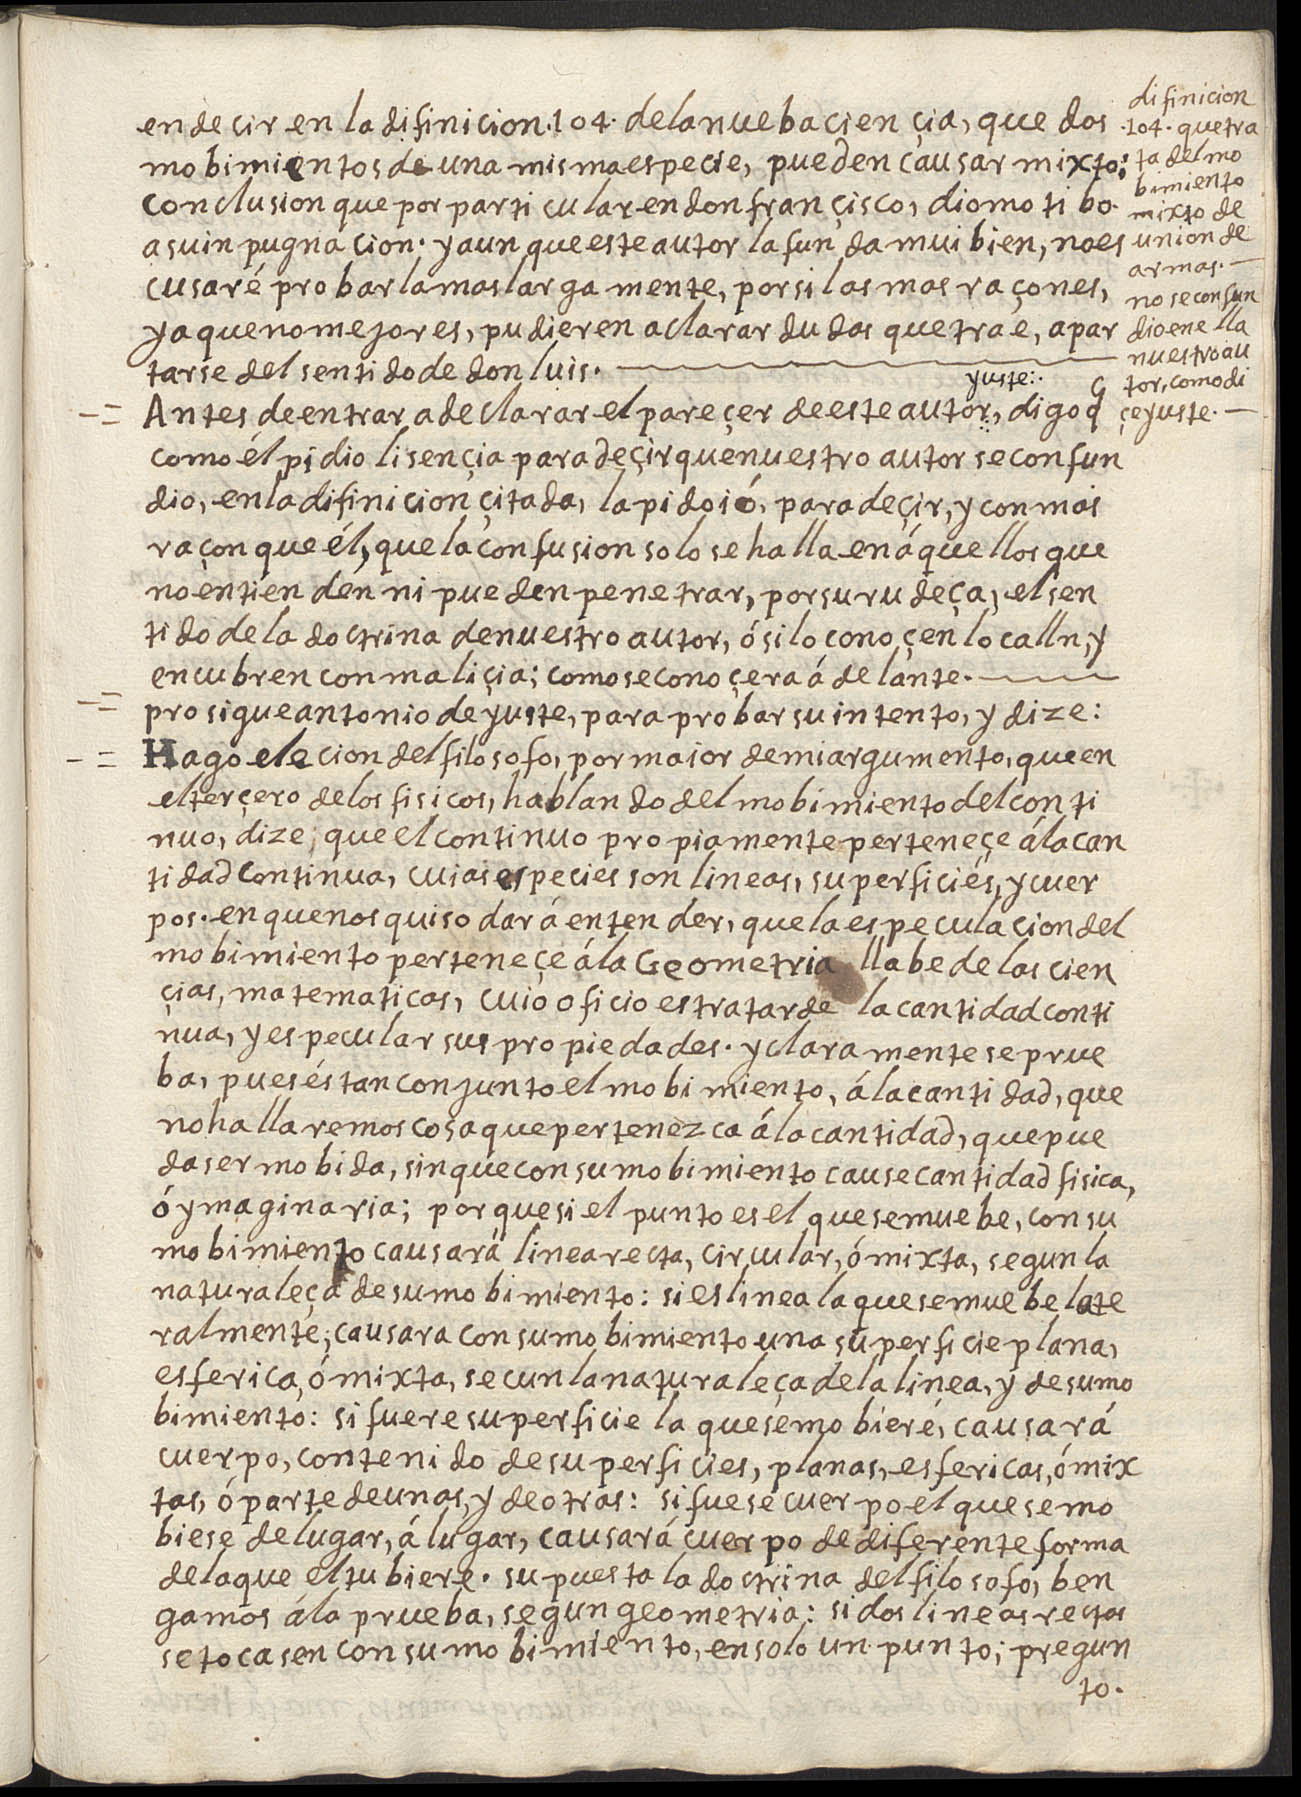 en decir en la difinicion .104. de la nueba ciençia, que dos
mobimientos de una misma especie, pueden causar mixto:
conclusion que por particular en don françisco, dio motibo
a su inpugnacion. y aunque este autor la funda mui bien, no es
cusaré probarla mas largamente, por si las mas raçones,
ya que no mejores, pudieren aclarar dudas que trae, apar
tarse del sentido de don luis.
yuste:.
Antes de entrar a declarar el pareçer de este autor, digo q
como él pidio lisençia para deçir que nuestro autor se confun
dio, en la difinicion çitada, la pido ió, para deçir, y con mas
raçon que él, que la confusion solo se halla en áquellos que
no entienden ni pueden penetrar, por su rudeça, el sen
tido de la doctrina de nuestro autor, ó si lo conoçen lo calln, y
encubren con maliçia; como se conoçera á delante.
prosigue antonio de yuste, para probar su intento, y dize:
Hago elecion del filosofo, por maior de mi argumento, que en
el terçero de los fisicos, hablando del mobimiento del conti
nuo, dize; que el continuo propiamente perteneçe á la can
tidad continua, cuias especies son lineas, superficiés, y cuer
pos. en que nos quiso dar á entender, que la especulacion del
mobimiento perteneçe á la Geometria llabe de las cien
çias, matematicas, cuio oficio es tratar de la cantidad conti
nua, y especular sus propiedades. y claramente se prue
ba, pues és tan conjunto el mobimiento, á la cantidad, que
no hallaremos cosa que pertenezca á la cantidad, que pue
da ser mobida, sin que con su mobimiento cause cantidad fisica,
ó ymaginaria; porque si el punto es el que se muebe, con su
mobimiento causará linea recta, circular, ó mixta, segun la
naturaleça de su mobimiento: si es linea la que se muebe late
ralmente, causara con su mobimiento una superficie plana,
esferica, ó mixta, secun la naturaleça de la linea, y de su mo
bimiento: si fuere superficie la que sé mobieré, causará
cuerpo, contenido de superficies, planas, esfericas, ó mix
tas, ó parte de unas, y de otras: si fuese cuerpo el que se mo
biese de lugar, á lugar, causará cuerpo de diferente forma
de la que el tubiere. supuesta la doctrina del filosofo, ben
gamos á la prueba, segun geometria: si dos lineas rectas
se tocasen con su mobimiento, en solo un punto; pregun
to.
difinicion
.104. que tra
ta del mo
bimiento
mixto de
union de
armas.
no se confun
dio en ella
nuestro au
tor, como di
çe yuste.